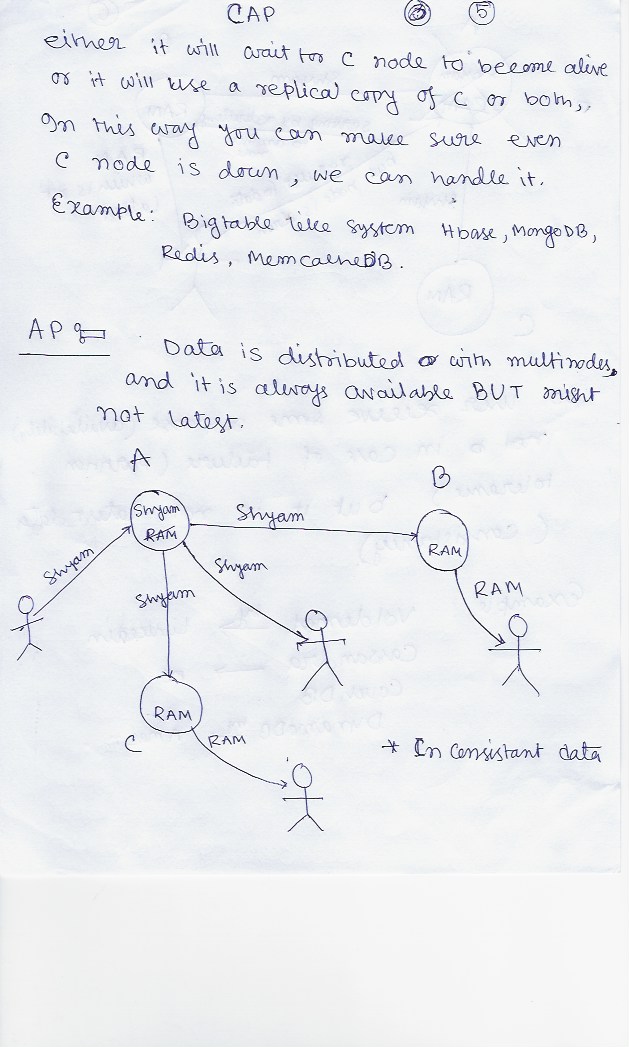 CAP 5
either it will wait for C node to become alive
or it will use a replical copy of C or both,,
In this way you can make sure even
C node is down, we can handle it.
Example: Bigtable like system Hbase, MongoDB,
Redis, MemcacheDB.
AP
Data is distributed with multinodes,
and it is always available BUT might
not latest.
A
B
Shyam
RAM
Shyam
RAM
Shyam
Shyam
Shyam
RAM
RAM
C
RAM
* In consistant data